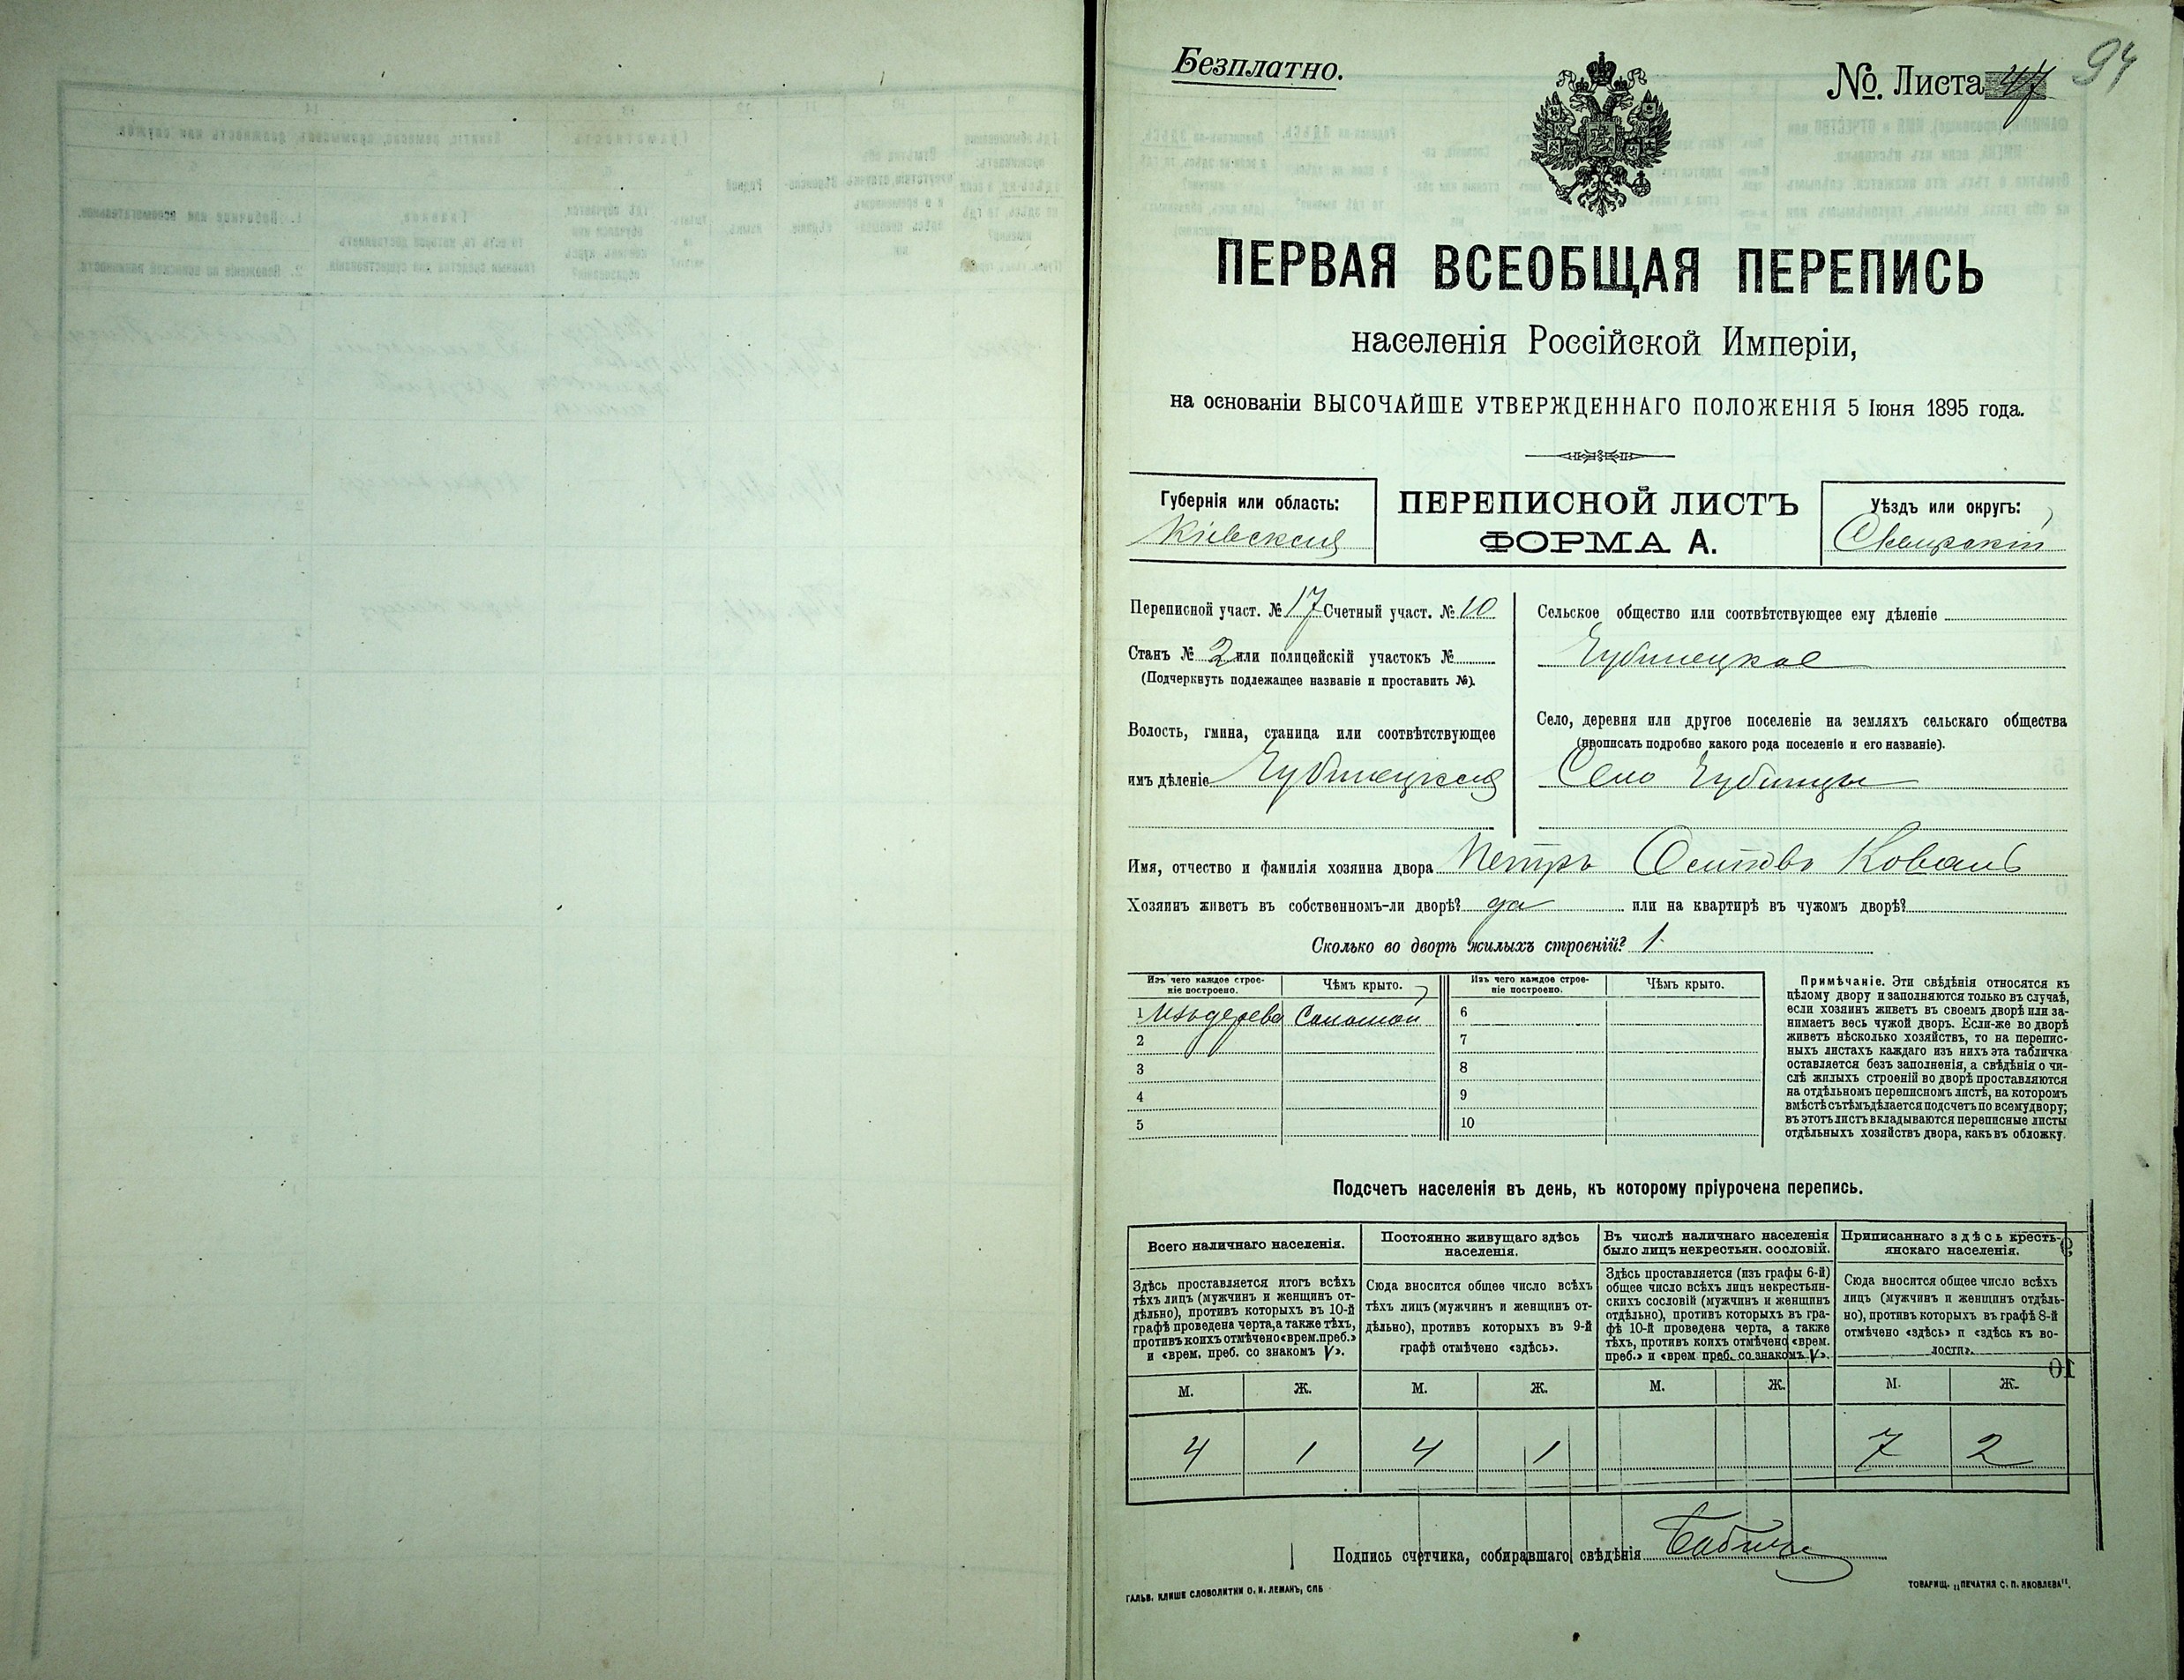 Безплатно.
№. Листа 47
94
ПЕРВАЯ ВСЕОБЩАЯ ПЕРЕПИСЬ
населенія Россійской Имперіи,
на основаніи ВЫСОЧАЙШЕ УТВЕРЖДЕННАГО ПОЛОЖЕНІЯ 5 Іюня 1895 года.
Губернія или область:
Кіевская
ПЕРЕПИСНОЙ ЛИСТЪ
ФОРМА А.
Уѣздъ или округъ:
Сквирскій
Переписной участ. № 17 Счетный участ. № 10
Станъ № 2 или полицейскій участокъ №
(Подчеркнуть подлежащее названіе и проставить №).
Волость, гмина, станица или соотвѣтствующее
имъ дѣленіе Чубинецкая
Сельское общество или соотвѣтствующее ему дѣленіе
Чубинецкое
Село, деревня или другое поселеніе на земляхъ сельскаго общества
(прописать подробно какого рода поселеніе и его названіе).
Село Чубинцы
Имя, отчество и фамилія хозяина двора Петръ Осиповъ Коваль
Хозяинъ живетъ въ собственномъ-ли дворѣ? да или на квартирѣ въ чужомъ дворѣ?
Сколько во дворѣ жилыхъ строеній? 1.
Изъ чего каждое строе-
ніе построено.
Чѣмъ крыто.
Изъ чего каждое строе-
ніе построено.
Чѣмъ крыто.
1 Изъ дерева Соломой 6
2 7
3 8
4 9
5 10
Примѣчаніе. Эти свѣдѣнія относятся къ
цѣлому двору и заполняются только въ случаѣ,
если хозяинъ живетъ въ своемъ дворѣ или за-
нимаетъ весь чужой дворъ. Если-же во дворѣ
живетъ нѣсколько хозяйствъ, то на перепис-
ныхъ листахъ каждаго изъ нихъ эта табличка
оставляется безъ заполненія, а свѣдѣнія о чи-
слѣ жилыхъ строеній во дворѣ проставляются
на отдѣльномъ переписномъ листѣ, на которомъ
вмѣстѣ съ тѣмъ дѣлается подсчетъ по всему двору;
въ этотъ листъ вкладываются переписные листы
отдѣльныхъ хозяйствъ двора, какъ въ обложку.
Подсчетъ населенія въ день, къ которому пріурочена перепись.
Всего наличнаго населенія.
Здѣсь проставляется итогъ всѣхъ
тѣхъ лицъ (мужчинъ и женщинъ от-
дѣльно), противъ которыхъ въ 10-й
графѣ проведена черта, а также тѣхъ,
противъ коихъ отмѣчено «врем. преб.»
и «врем. преб. со знакомъ V».
Постоянно живущаго здѣсь
населенія.
Сюда вносится общее число всѣхъ
тѣхъ лицъ (мужчинъ и женщинъ от-
дѣльно), противъ которыхъ въ 9-й
графѣ отмѣчено «здѣсь».
Въ числѣ наличнаго населенія
было лицъ некрестьян. сословій.
Здѣсь проставляется (изъ графы 6-й)
общее число всѣхъ лицъ некрестьян-
скихъ сословій (мужчинъ и женщинъ
отдѣльно), противъ которыхъ въ гра-
фѣ 10-й проведена черта, а также
тѣхъ, противъ коихъ отмѣчено «врем.
преб.» и «врем преб. со знакомъ V».
Приписаннаго здѣсь кресть-
янскаго населенія.
Сюда вносится общее число всѣхъ
лицъ (мужчинъ и женщинъ отдѣль-
но), противъ которыхъ въ графѣ 8-й
отмѣчено «здѣсь» и «здѣсь къ во-
лости».
М. Ж. М. Ж. М. Ж. М. Ж.
4 1 4 1 7 2
Подпись счетчика, собиравшаго свѣдѣнія
ГАЛЬВ. КЛИШЕ СЛОВОЛИТНИ О. И. ЛЕМАНЪ, СПБ
ТОВАРИЩ. „ПЕЧАТНЯ С. П. ЯКОВЛЕВА".